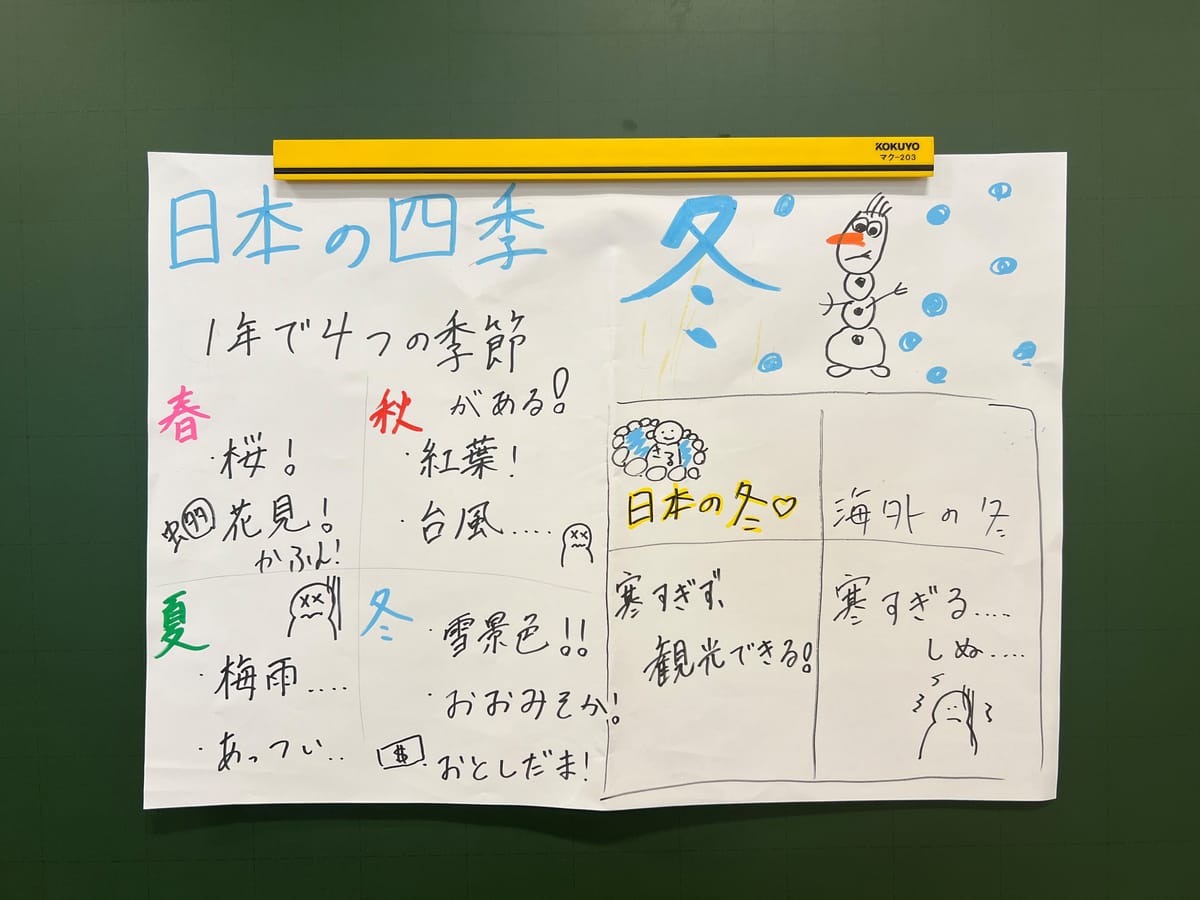 KOKUYO
マク-203
日本の四季
1年で4つの季節
がある!
春
・桜!
花見!
かふん!
秋
・紅葉!
・台風....
夏
・梅雨....
・あっつい..
冬
・雪景色!!
・おおみそか!
$
・おとしだま!
冬
さる!
日本の冬♡
寒すぎず、
観光できる!
海外の冬
寒すぎる....
しぬ....